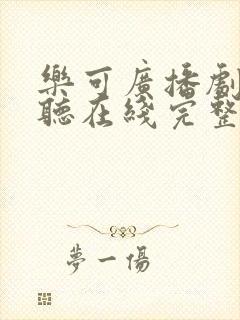 樂可廣播劇
聽在綫完整
夢一傷